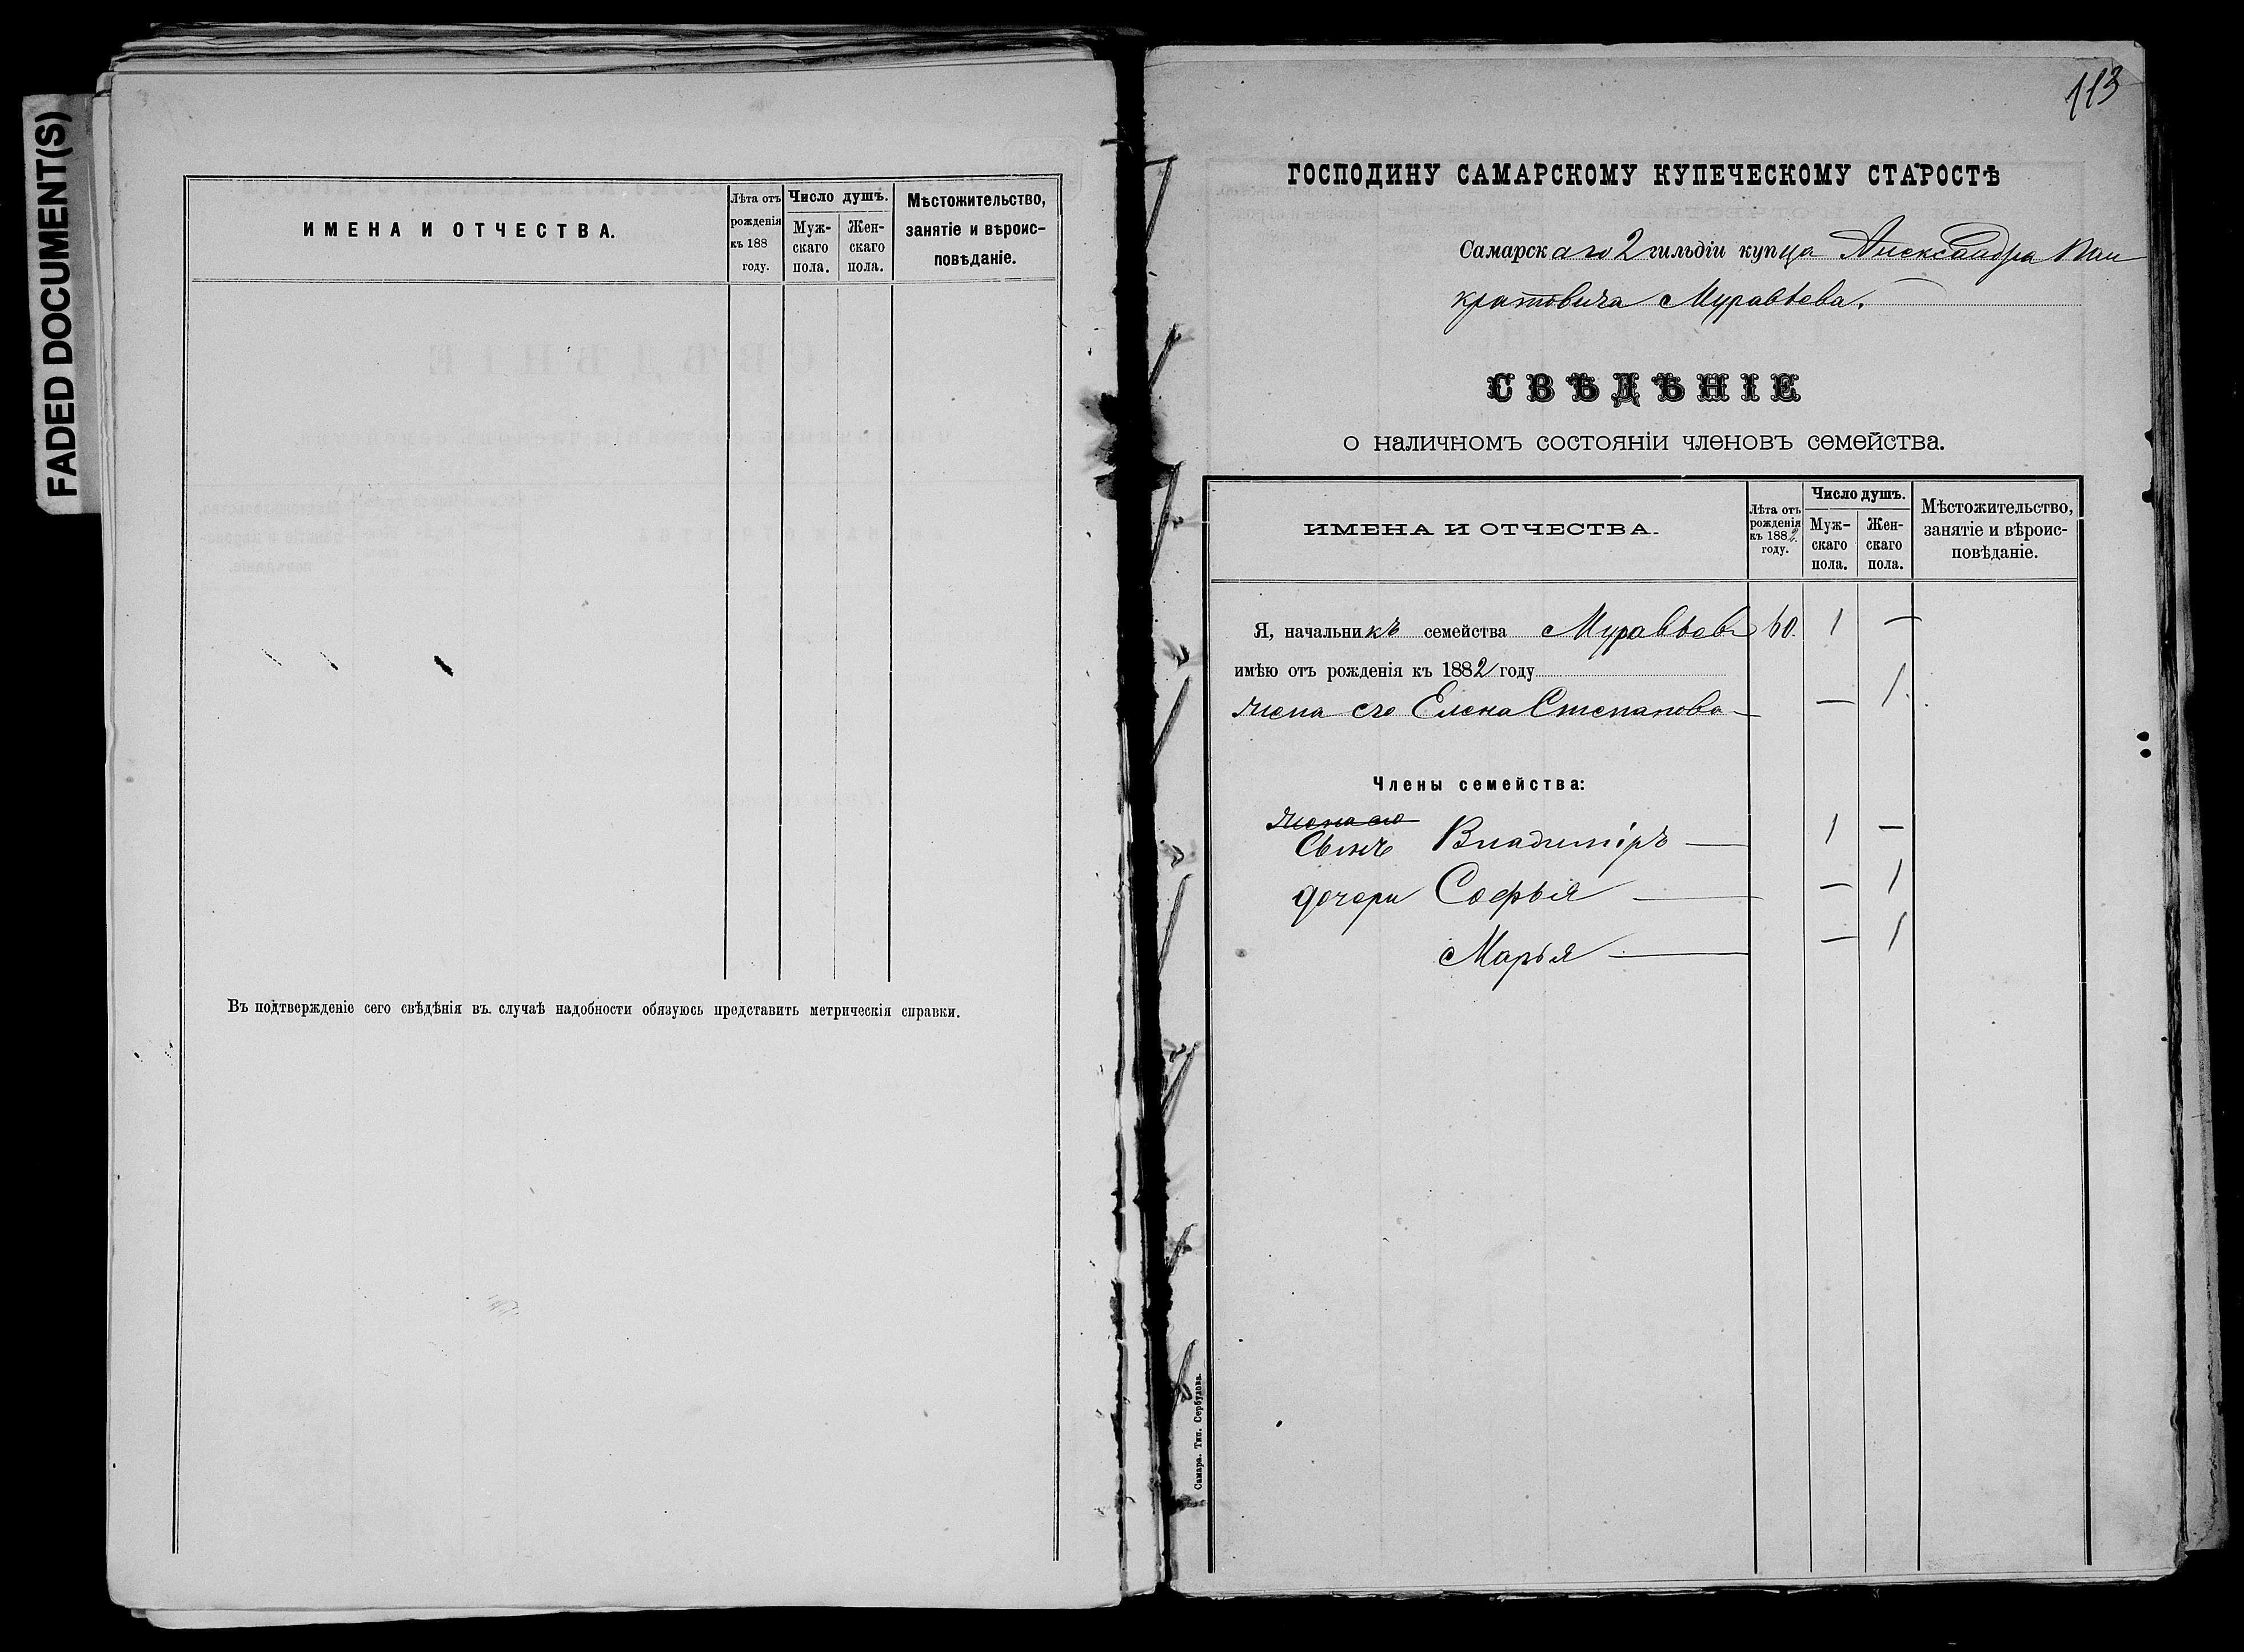 FADED DOCUMENT(S)
ИМЕНА И ОТЧЕСТВА.
Лѣта отъ
рожденія
къ 188
году.
Число душъ.
Муж-
скаго
пола.
Жен-
скаго
пола.
Мѣстожительство,
занятіе и вѣроис-
повѣданіе.
Въ подтвержденіе сего свѣдѣнія въ случаѣ надобности обязуюсь представить метрическія справки.
113
ГОСПОДИНУ САМАРСКОМУ КУПЕЧЕСКОМУ СТАРОСТѢ
Самарскаго 2 гильдіи купца Александра Пан
кратовича Муравьева.
СВѢДѢНІЕ
о наличномъ состояніи членовъ семейства.
ИМЕНА И ОТЧЕСТВА.
Лѣта отъ
рожденія
къ 1882
году.
Число душъ.
Муж-
скаго
пола.
Жен-
скаго
пола.
Мѣстожительство,
занятіе и вѣроис-
повѣданіе.
Я, начальникъ семейства Муравьевъ 60. 1 —
имѣю отъ рожденія къ 1882 году
жена его Елена Степанова — — 1
Члены семейства:
жена его
Сынъ Владиміръ — 1 —
дочери Софья — — 1
Марья — — 1
Самара. Тип. Сербулова.